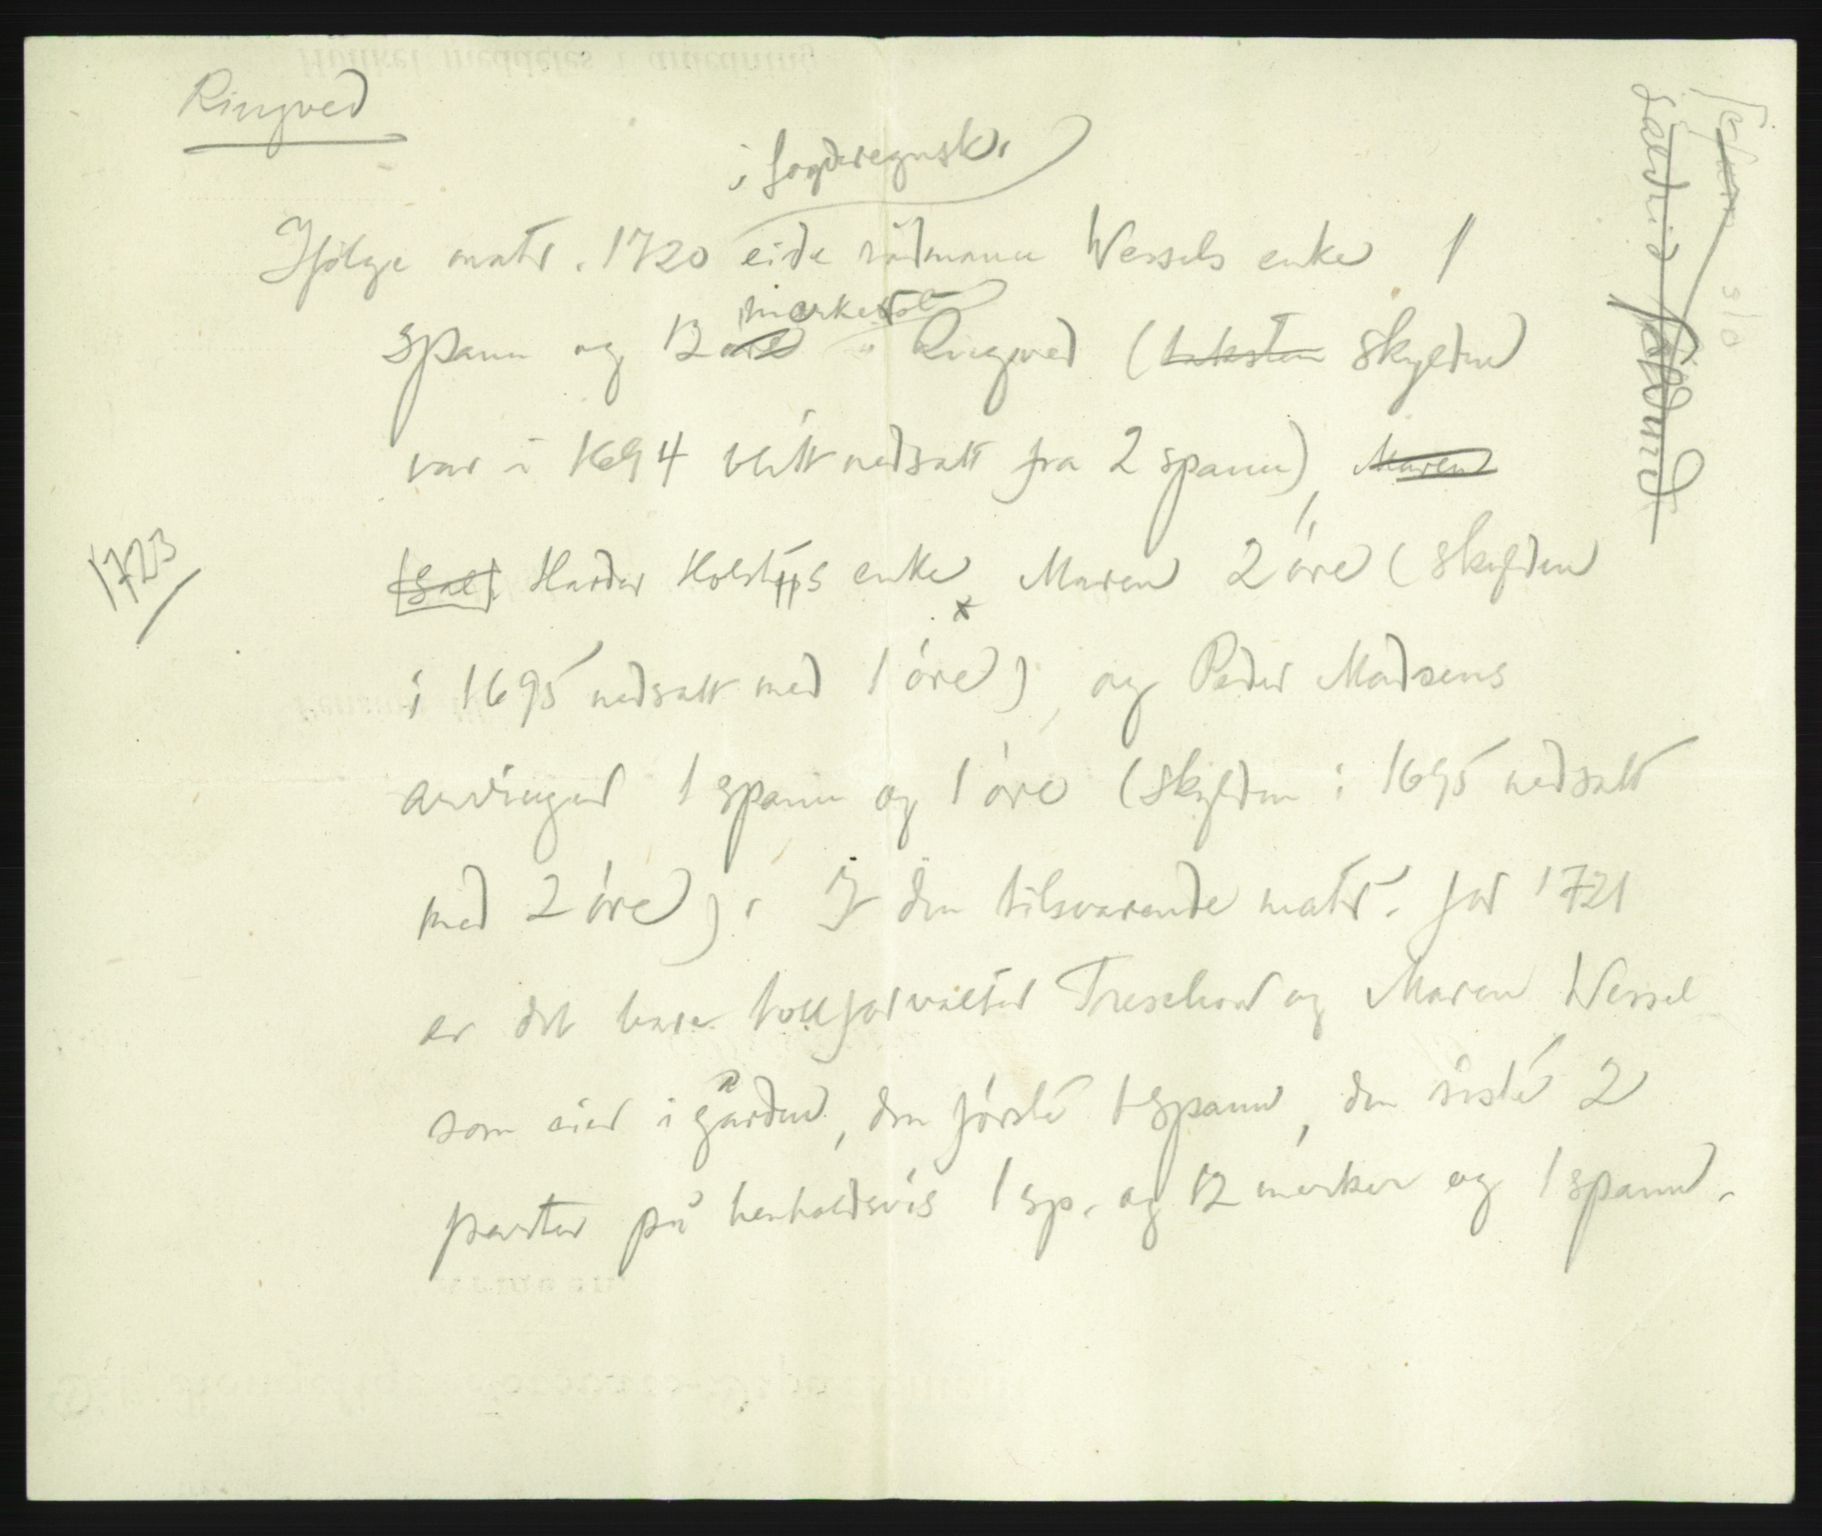 Ringved
i fogderegnsk.
Ifølge matr. 1720 eide rådmann Wessels enke 1
merker
spann og 12 øre i Ringved (laksten skylden
var i 1694 blitt nedsatt fra 2 spann), Maren
[Sal.] Hardar Holsts enke Maren 2 øre (skylden
x
1723
i 1695 nedsatt med 1 øre), og Peder Madsens
arvinger 1 spann og 1 øre (skylden i 1695 nedsatt
med 2 øre). I den tilsvarende matr. for 1721
er det bare tollforvalter Treschow og Maren Wessel
som eier i gården, den første 1 spann, den siste 2
parter på henholdsvis 1 sp. og 12 merker og 1 spann.